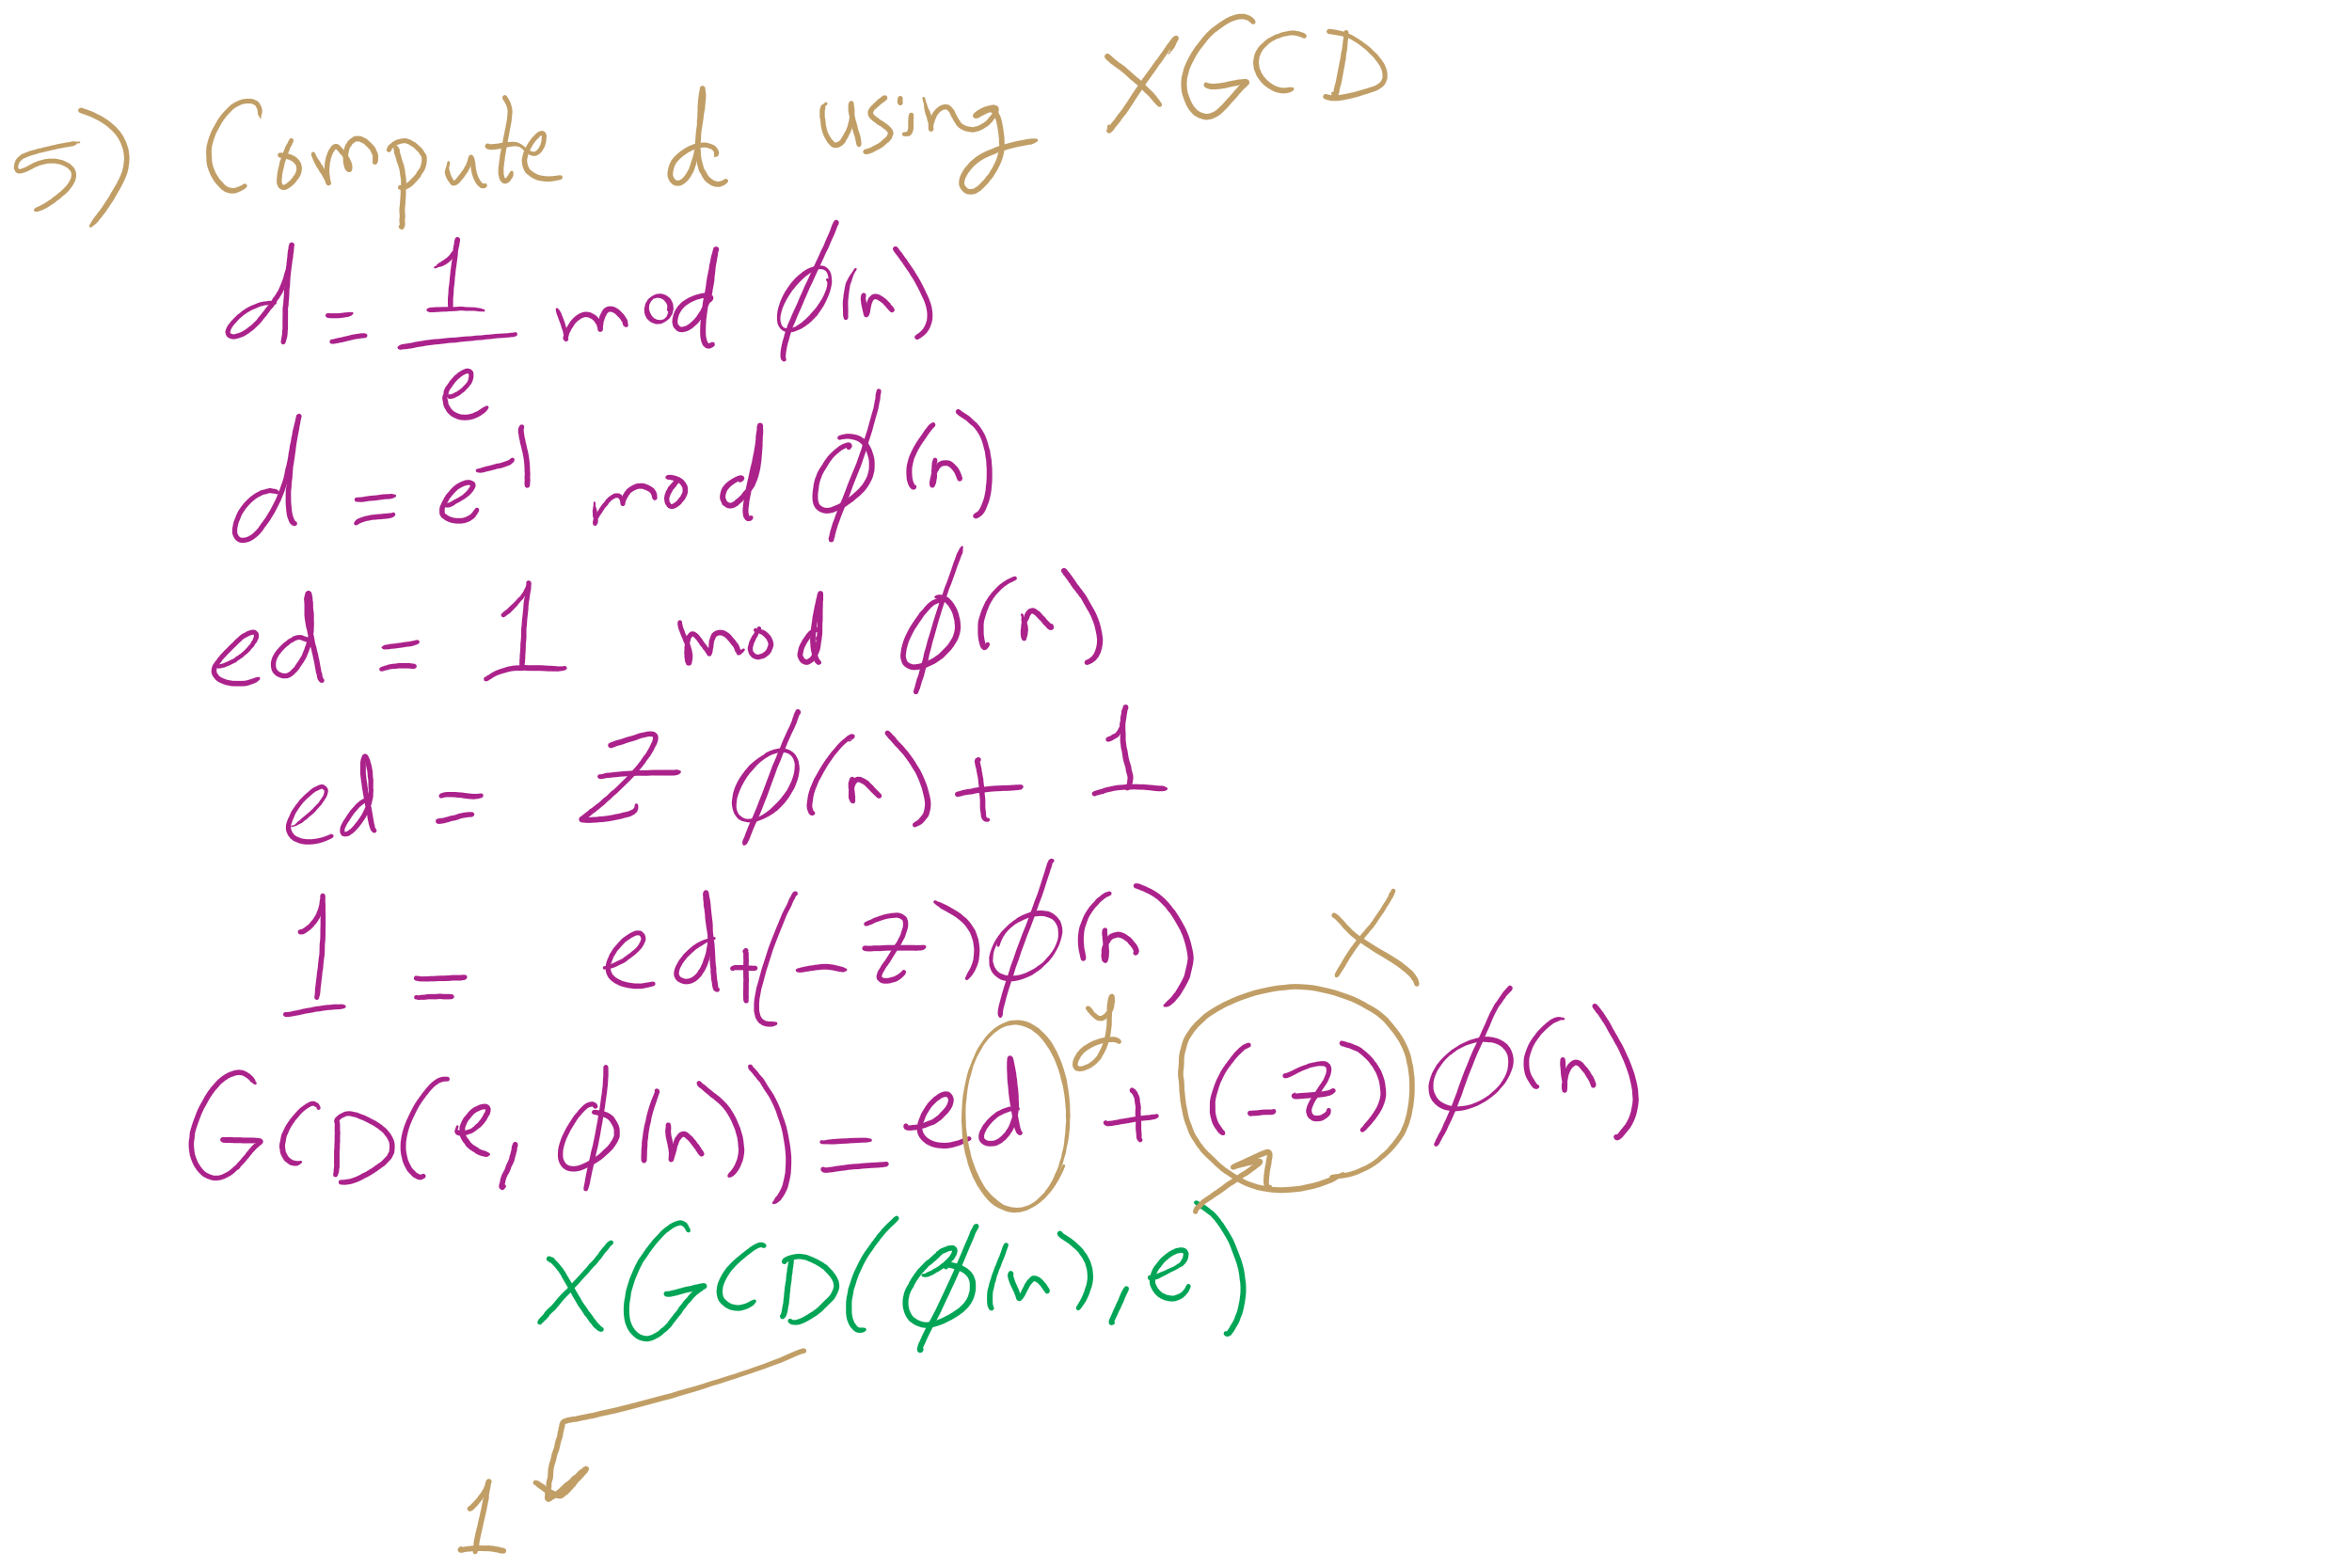 5) Compute d using XGCD
d = 1/e mod ϕ(n)
d = e⁻¹ mod ϕ(n)
ed = 1 mod ϕ(n)
ed = z ϕ(n) + 1
1 = ed + (-z) ϕ(n)
y x
GCD(e, ϕ(n)) = ed + (-z) ϕ(n)
XGCD(ϕ(n), e)
1